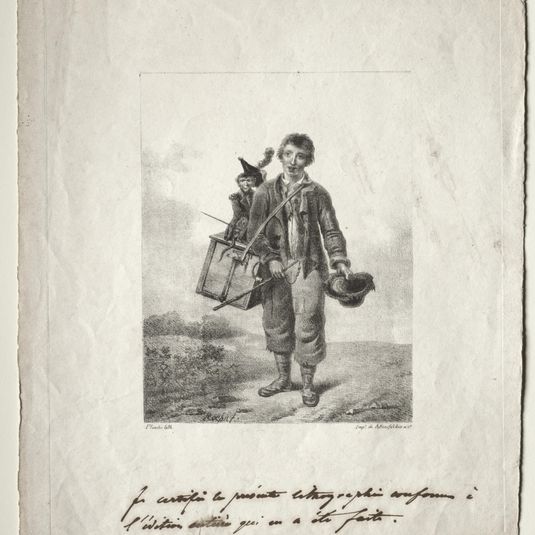 lith.
Imp. de
Je certifie la présente lithographie conforme à
l'édition entière qui en a été faite.